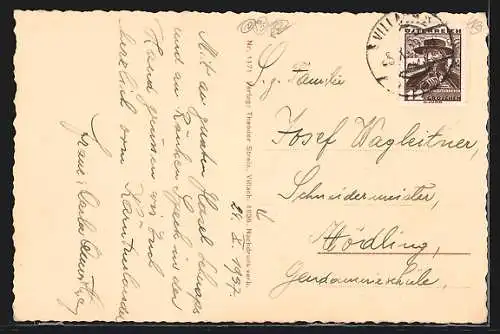 Mit an guaten Glasel Schnaps
und an Ranken Speck in der
Hand grüssen wir Euch
herzlich vom
Kärntnerlandl
Nr. 1171 Verlag: Theodor Streit, Villach. 1936. Nachdruck verb.
24. X. 1937.
VILLACH
ÖSTERREICH
S. g. Familie
Josef Wagleitner,
Schneidermeister,
Mödling,
Gendarmerieschule,